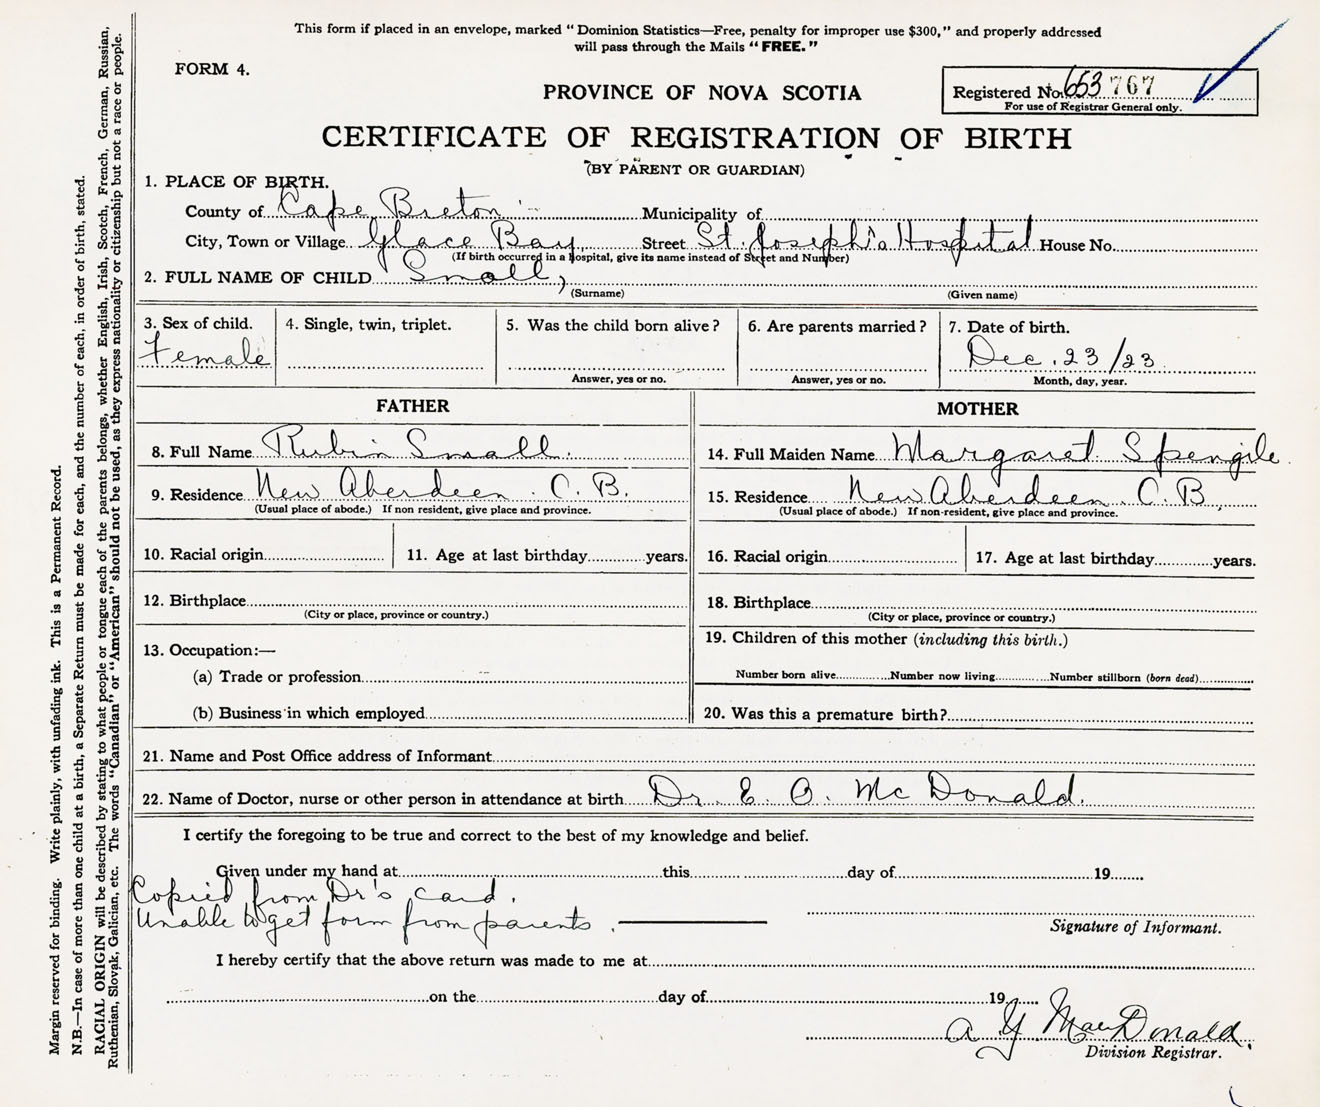 This form if placed in an envelope, marked "Dominion Statistics—Free, penalty for improper use $300," and properly addressed
will pass through the Mails "FREE."
FORM 4.
PROVINCE OF NOVA SCOTIA
Registered No. 653 767
For use of Registrar General only.
CERTIFICATE OF REGISTRATION OF BIRTH
(BY PARENT OR GUARDIAN)
1. PLACE OF BIRTH.
County of Cape Breton Municipality of
City, Town or Village Glace Bay, Street St. Joseph's Hospital House No.
(If birth occurred in a hospital, give its name instead of Street and Number)
2. FULL NAME OF CHILD Small,
(Surname) (Given name)
3. Sex of child. 4. Single, twin, triplet. 5. Was the child born alive? 6. Are parents married? 7. Date of birth.
Female Dec. 23/23
Answer, yes or no. Answer, yes or no. Month, day, year.
FATHER
8. Full Name Rubin Small.
9. Residence New Aberdeen. C.B.
(Usual place of abode.) If non resident, give place and province.
10. Racial origin 11. Age at last birthday years.
12. Birthplace
(City or place, province or country.)
13. Occupation:—
(a) Trade or profession
(b) Business in which employed
MOTHER
14. Full Maiden Name Margaret Spengile.
15. Residence New Aberdeen. C.B
(Usual place of abode.) If non-resident, give place and province.
16. Racial origin 17. Age at last birthday years.
18. Birthplace
(City or place, province or country.)
19. Children of this mother (including this birth.)
Number born alive Number now living Number stillborn (born dead)
20. Was this a premature birth?
21. Name and Post Office address of Informant
22. Name of Doctor, nurse or other person in attendance at birth Dr. E. O. McDonald.
I certify the foregoing to be true and correct to the best of my knowledge and belief.
Given under my hand at this day of 19
Copied from Dr's card.
Unable to get form from parents.
Signature of Informant.
I hereby certify that the above return was made to me at
on the day of 19
A Y MacDonald.
Division Registrar.
Margin reserved for binding. Write plainly, with unfading ink. This is a Permanent Record.
N.B.—In case of more than one child at a birth, a Separate Return must be made for each, and the number of each, in order of birth, stated.
RACIAL ORIGIN will be described by stating to what people or tongue each of the parents belongs, whether English, Irish, Scotch, French, German, Russian,
Ruthenian, Slovak, Galician, etc. The words "Canadian" or "American" should not be used, as they express nationality or citizenship but not a race or people.